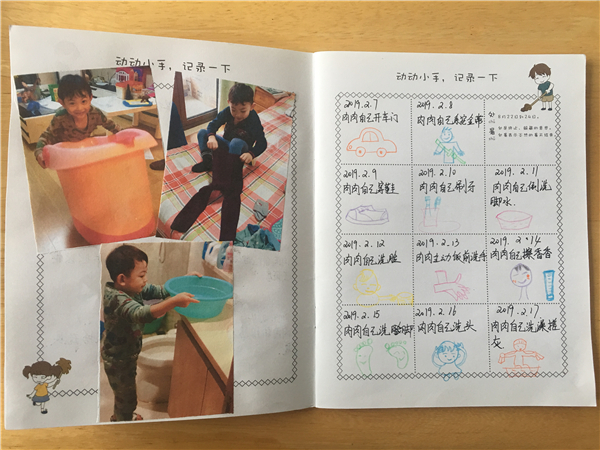 动动小手，记录一下
动动小手，记录一下
2019.2.7
肉肉自己开车门
2019.2.8
肉肉自己系安全带
2019.2.9
肉肉自己穿鞋
2019.2.10
肉肉自己刷牙
2019.2.11
肉肉自己倒洗
脚水.
2019.2.12
肉肉自己洗脸
2019.2.13
肉肉主动饭前洗手
2019.2.14
肉肉自己擦香香
2019.2.15
肉肉自己洗脚
2019.2.16
肉肉自己洗头
2019.2.17
肉肉自己洗澡搓
灰